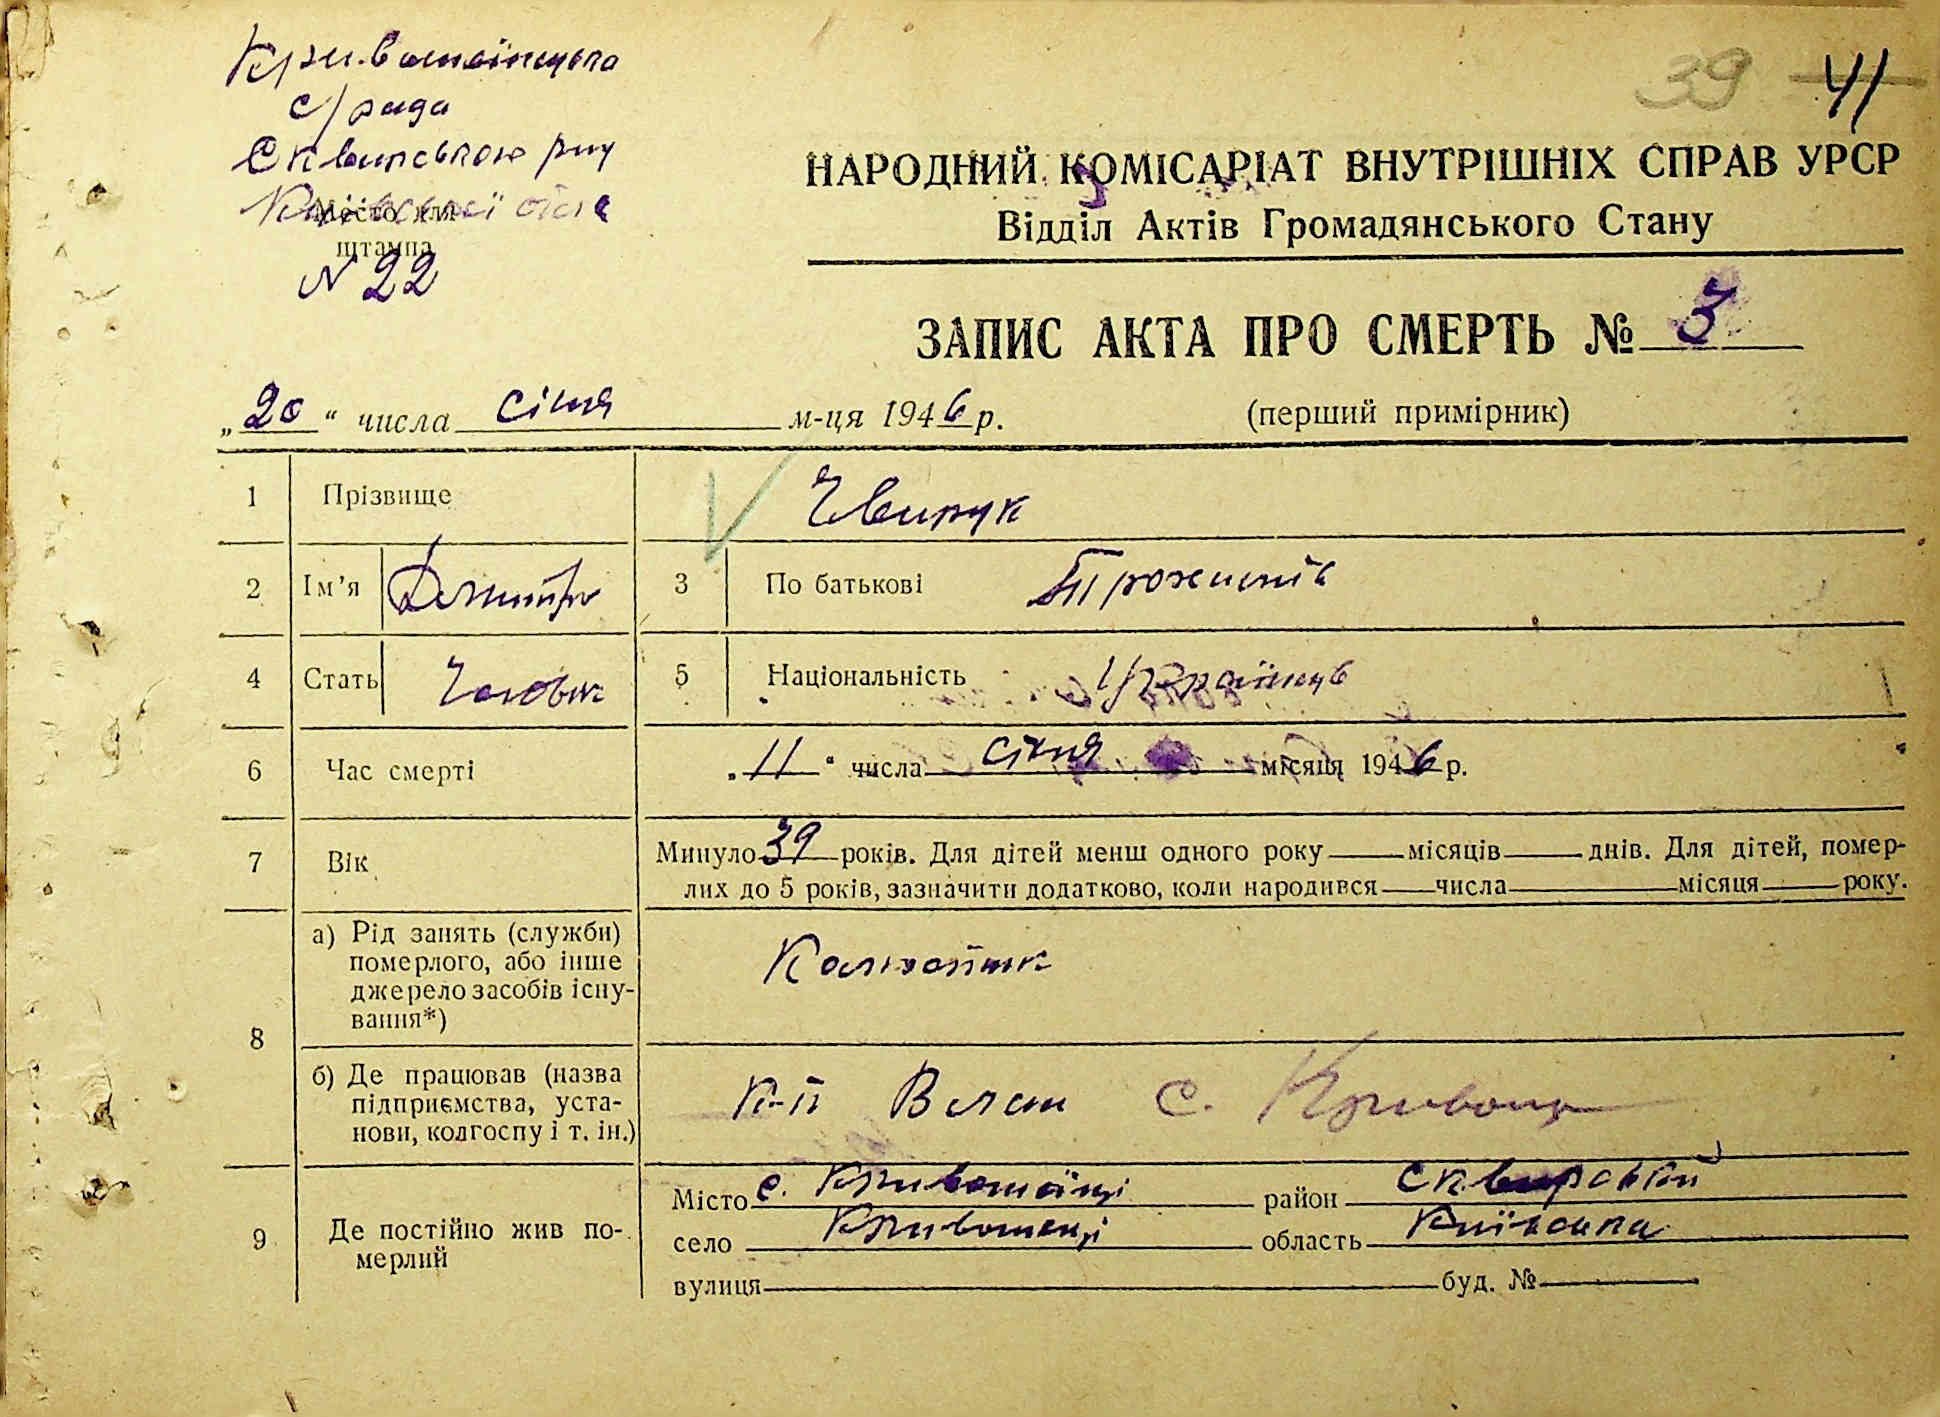 Кривошеїнська
с/рада
Сквирського р-ну
Київської обл.
Місто для
штампа
№ 22
39 41
НАРОДНИЙ КОМІСАРІАТ ВНУТРІШНІХ СПРАВ УРСР
Відділ Актів Громадянського Стану
ЗАПИС АКТА ПРО СМЕРТЬ № 3
„20“ числа січня м-ця 1946 р.
(перший примірник)
1 Прізвище Чвирук
2 Ім'я Дмитро 3 По батькові
4 Стать Чоловік 5 Національність Українць
6 Час смерті „11“ числа січня місяця 1946 р.
7 Вік Минуло 39 років. Для дітей менш одного року місяців днів. Для дітей, помер-
лих до 5 років, зазначити додатково, коли народився числа місяця року.
8 а) Рід занять (служби)
померлого, або інше
джерело засобів існу-
вання*)
Колгоспник
б) Де працював (назва
підприємства, уста-
нови, колгоспу і т. ін.)
К-п с.
9 Де постійно жив по-
мерлий
Місто с. Кривошеїнці район Сквирський
село Кривошенці область Київська
вулиця буд. №